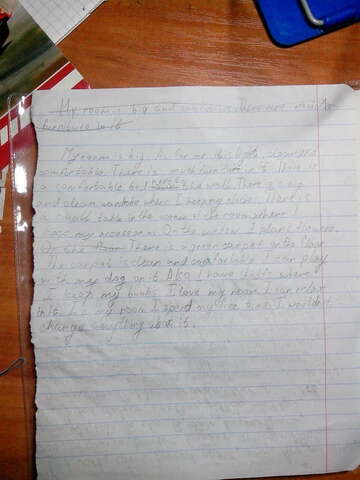 My room is big and comfortable. There are much
furniture in it
My room is big. As for me it is light, clean and
comfortable. There is much furniture in it. There is
a comfortable bed the wall. There is a big
and clean wardrobe where I keeping clothes. There is
a small table in the corner of the room where
I my accessories. On the window I plans flowers.
On the floor There is a green carpet on the floor
The carpet is clean and comfortable. I can play
with my dog on it. Also I have shelfs where
I keep my books. I love my room. I can relax
in it. In my room I spend my free time. I wouldn't
change something about it.